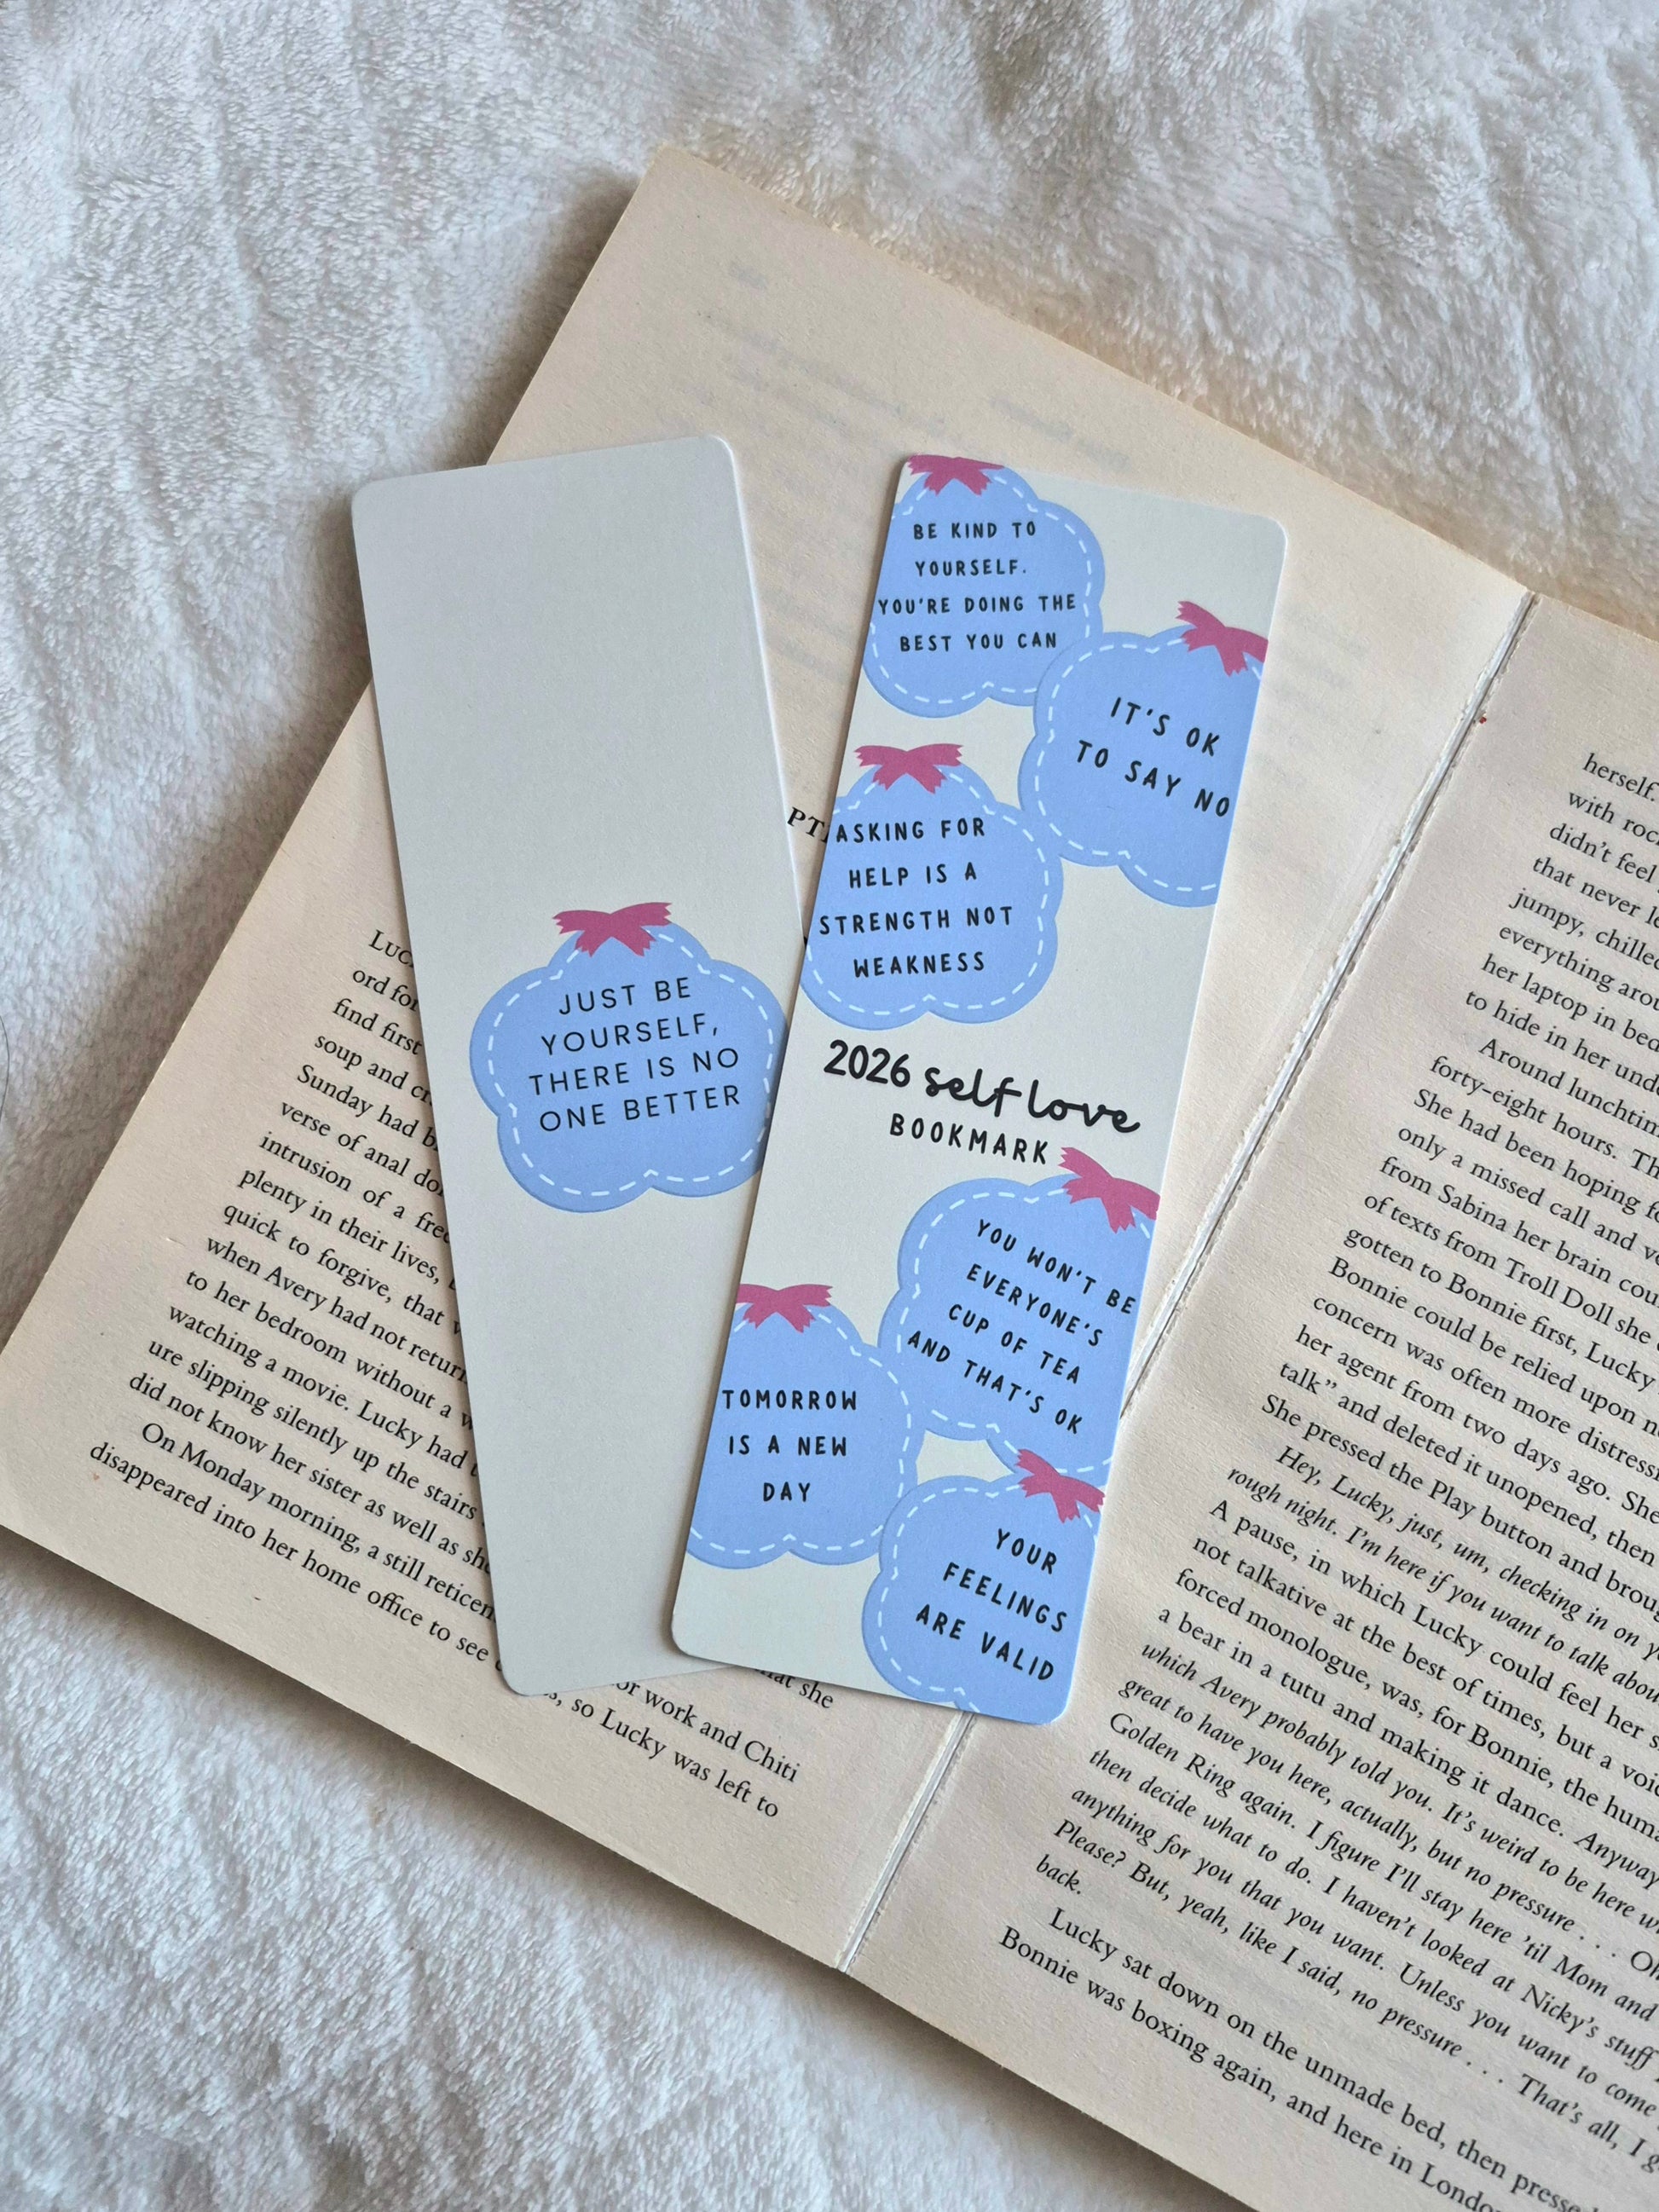 JUST BE
YOURSELF,
THERE IS NO
ONE BETTER
BE KIND TO
YOURSELF.
YOU'RE DOING THE
BEST YOU CAN
IT'S OK
TO SAY NO
ASKING FOR
HELP IS A
STRENGTH NOT
WEAKNESS
2026 self love
BOOKMARK
YOU WON'T BE
EVERYONE'S
CUP OF TEA
AND THAT'S OK
TOMORROW
IS A NEW
DAY
YOUR
FEELINGS
ARE VALID
ord for
find first
soup and
Sunday had
verse of anal
intrusion of a
plenty in their lives,
quick to forgive, that
when Avery had not
to her bedroom without a
watching a movie. Lucky had
ure slipping silently up the stairs
did not know her sister as well as
On Monday morning, a still
disappeared into her home office to see
she
or work and Chiti
so Lucky was left to
herself.
with
didn't feel
that never
jumpy, chilled
everything
her laptop in
to hide in her
Around
forty-eight hours.
She had been hoping
only a missed call and
from Sabina her brain
of texts from Troll Doll she
gotten to Bonnie first, Lucky
Bonnie could be relied upon
concern was often more
her agent from two days ago. She
talk" and deleted it unopened, then
She pressed the Play button and
Hey, Lucky, just, um, checking in on
rough night. I'm here if you want to talk
A pause, in which Lucky could feel her
not talkative at the best of times, but a
forced monologue, was, for Bonnie, the
a bear in a tutu and making it dance. Anyway
which Avery probably told you. It's weird to be here
great to have you here, actually, but no pressure . . .
Golden Ring again. I figure I'll stay here 'til Mom and
then decide what to do. I haven't looked at Nicky's stuff
anything for you that you want. Unless you want to come
Please? But, yeah, like I said, no pressure . . . That's all, I
back.
Lucky sat down on the unmade bed, then
Bonnie was boxing again, and here in